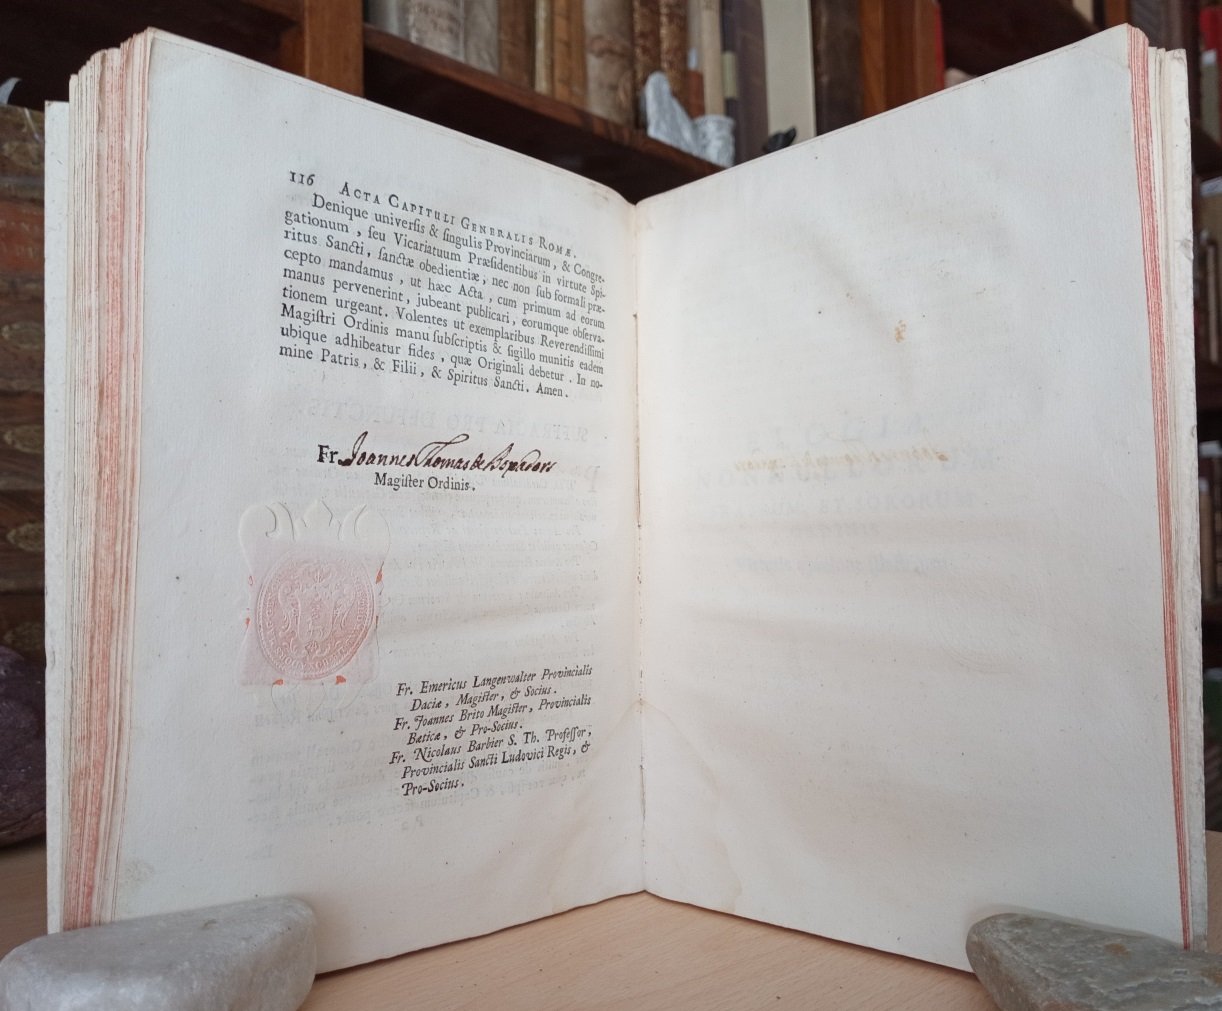 116 ACTA CAPITULI GENERALIS ROMÆ.
Denique universis & singulis Provinciarum, & Congre-
gationum, seu Vicariatuum Præsidentibus in virtute Spi-
ritus Sancti, sanctæ obedientiæ, nec non sub formali præ-
cepto mandamus, ut hæc Acta, cum primum ad eorum
manus pervenerint, jubeant publicari, eorumque observa-
tionem urgeant. Volentes ut exemplaribus Reverendissimi
Magistri Ordinis manu subscriptis & sigillo munitis eadem
ubique adhibeatur fides, quæ Originali debetur. In no-
mine Patris, & Filii, & Spiritus Sancti. Amen.
Fr. Joannes Thomas de Boxadors
Magister Ordinis.
Fr. Emericus Langenwalter Provincialis
Daciæ, Magister, & Socius.
Fr. Joannes Brito Magister, Provincialis
Bæticæ, & Pro-Socius.
Fr. Nicolaus Barbier S. Th. Professor,
Provincialis Sancti Ludovici Regis, &
Pro-Socius.